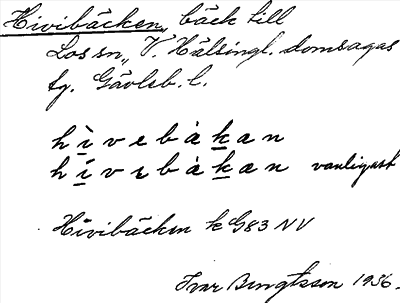 Hivibäcken, bäck till
Los sn, V. Hälsingl. domsagas
tg. Gävleb. l.
hìvebàkan
hívebàkæn vanligast
Hivibäcken k G83 NV
Ivar Bengtsson 1936.